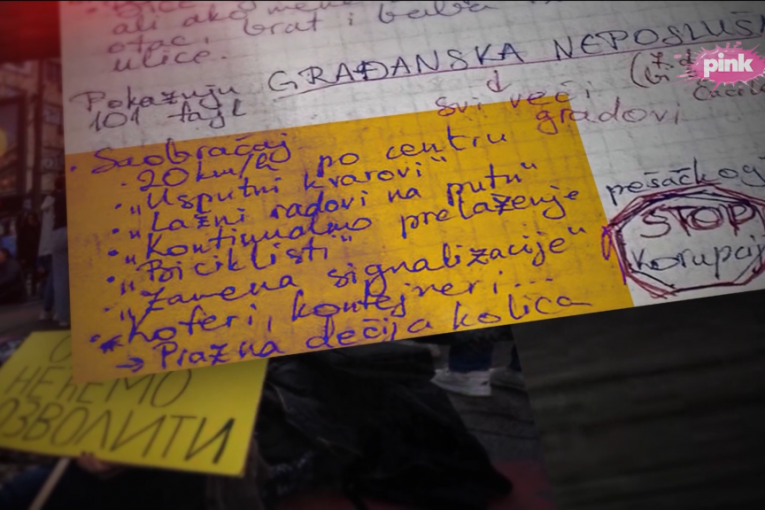 ali ako
otac, brat i baba
ulice.
Pokazuju GRAĐANSKA NEPOSLUŠ
101 tajl
svi veći
gradovi
pink
• Saobraćaj
• 20 km/h po centru
• "Usputni kvarovi"
• "Lažni radovi na putu"
• "Kontinualno prelaženje
pešačkog
• "Biciklisti"
• "Zamena signalizacije"
• Koferi, kontejneri...
→ Prazna dečija kolica
STOP
korupcij
НЕЋЕМО
ОЗВОЛИТИ